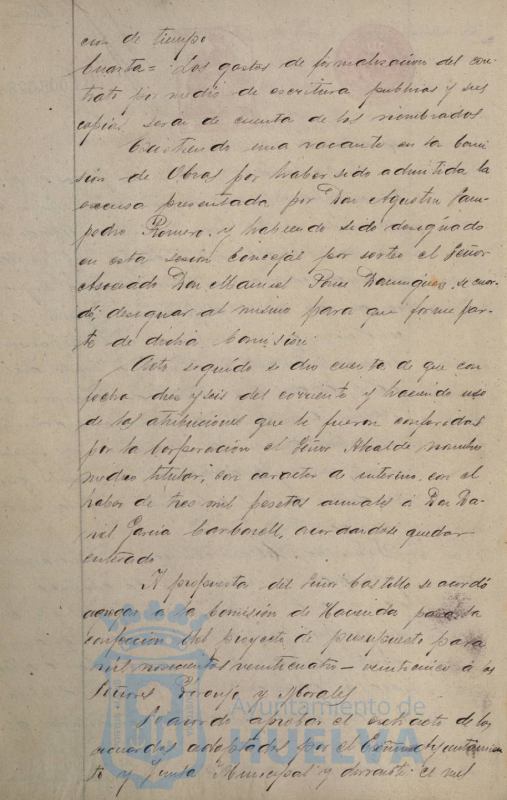 cion de tiempo
Cuarta = Los gastos de formalización del con-
trato por medio de escritura publica y sus
copias, seran de cuenta de los nombrados.
Existiendo una vacante en la Comi-
sión de Obras por haber sido admitida la
excusa presentada por Don Agustin Sam-
pedro Romero, y habiendo sido designado
en esta sesión Concejal por sorteo el Señor
Asociado Don Manuel Ponce Dominguez, se acor-
dó, designar al mismo para que forme par-
te de dicha Comisión.
Acto seguido se dio cuenta de que con
fecha diez y seis del corriente y haciendo uso
de las atribuciones que le fueron conferidas
por la Corporación el Señor Alcalde nombró
medico titular, con caracter de interino, con el
haber de tres mil pesetas anuales á Don Da-
niel Garcia Carbonell, acordandose quedar
enterado.
A propuesta del Señor Castillo se acordó
a la Comisión de Hacienda para la
confección del proyecto de presupuesto para
mil novecientos veinticuatro - veinticinco á los
Señores y Morales.
Se acordó aprobar el extracto de los
acuerdos adoptados por el Excmo. Ayuntamien-
to y Junta Municipal y durante el mes
Ayuntamiento de
HUELVA